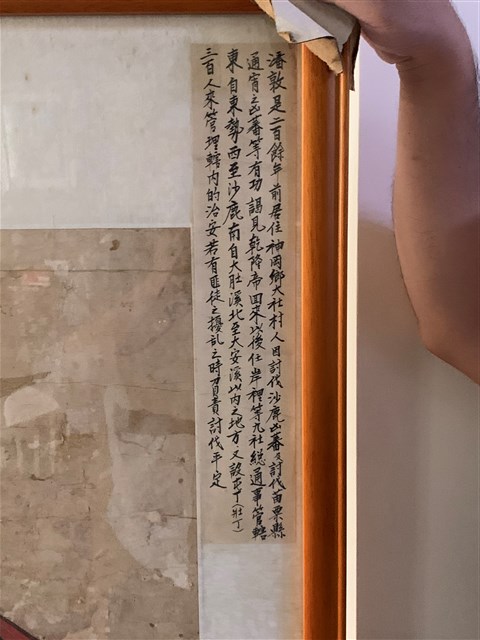 潘敦是二百餘年前居住神岡鄉大社村人因討伐沙鹿凶蕃及討伐苗栗縣
通宵之凶蕃等有功謁見乾隆帝回來以後任岸裡等九社総通事管轄
東自東勢西至沙鹿南自大肚溪北至大安溪以內之地方又設屯丁(壯丁)
三百人來管理轄內的治安若有匪徒之擾乱之時負責討伐平定